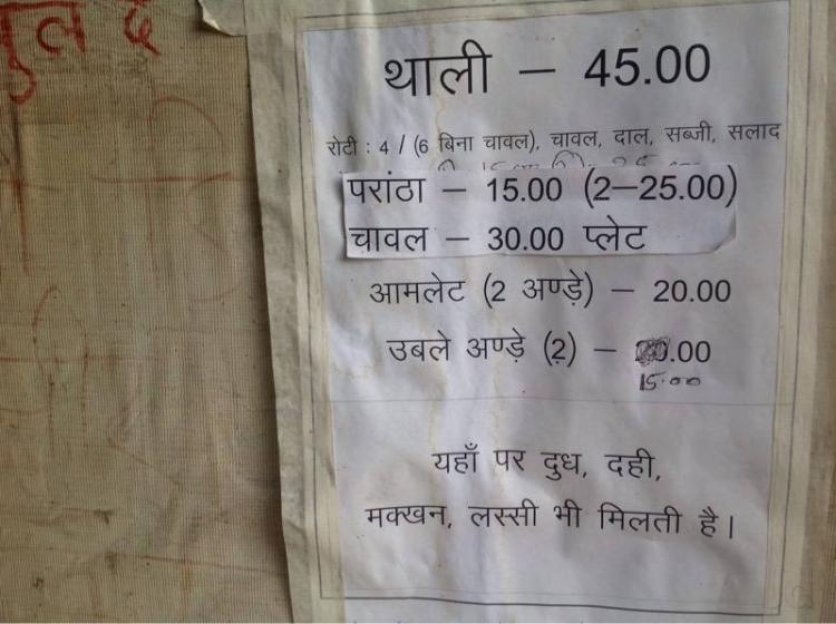 थाली – 45.00
रोटी : 4 / (6 बिना चावल), चावल, दाल, सब्जी, सलाद
परांठा – 15.00 (2–25.00)
चावल – 30.00 प्लेट
आमलेट (2 अण्ड़े) – 20.00
उबले अण्ड़े (2) – .00
15.00
यहाँ पर दुध, दही,
मक्खन, लस्सी भी मिलती है।